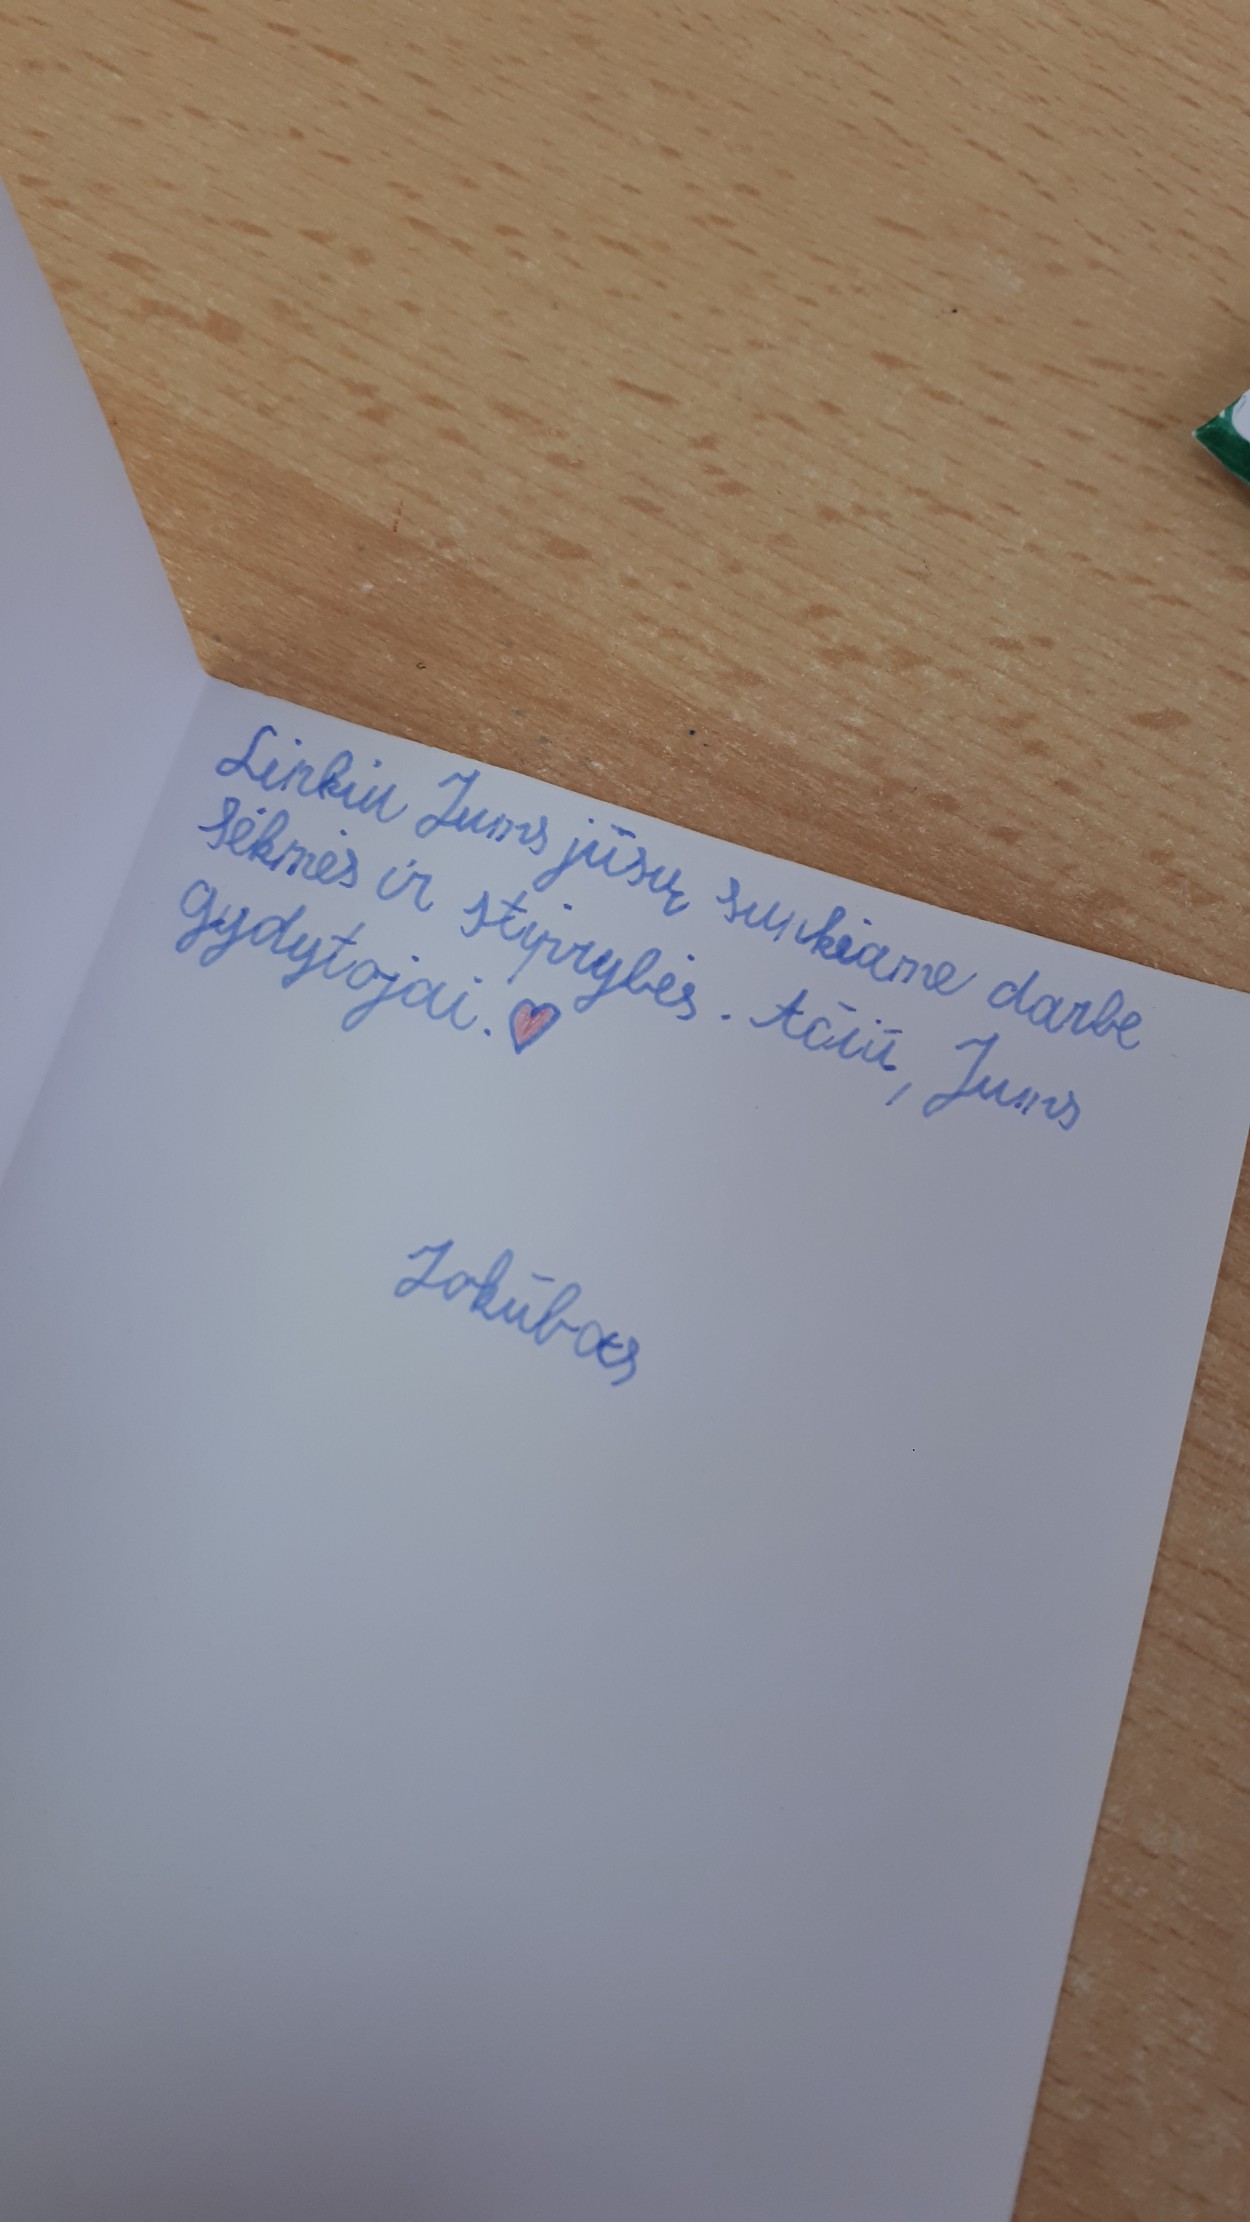 Linkiu Jums jūsų sunkiame darbe
sėkmės ir stiprybės. Ačiū, Jums
gydytojai.
Jokūbas